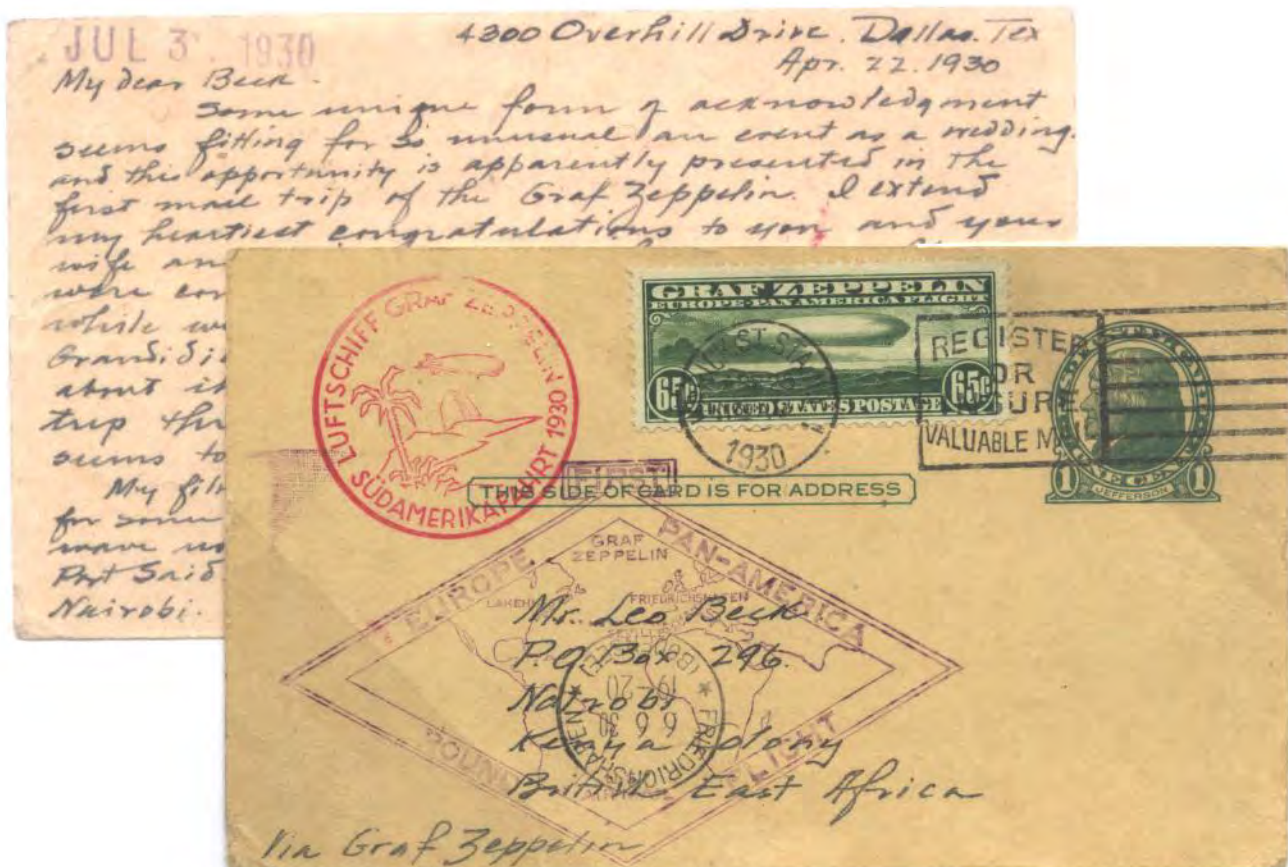 JUL 3 . 1930
4300 Overhill Drive. Dallas. Tex
Apr. 22. 1930
My dear Beck.
Some unique form of acknowledgment
seems fitting for so unusual an event as a wedding.
and this opportunity is apparently presented in the
first mail trip of the Graf Zeppelin. I extend
my heartiest congratulations to you and your
wife an
were con
while w
Grandidi
about it
trip thr
seems to
My film
for some
Port Said
Nairobi.
LUFTSCHIFF GRAF ZEPPELIN
SÜDAMERIKAFAHRT 1930
GRAF ZEPPELIN
EUROPE-PAN-AMERICA FLIGHT
65¢ 65¢
UNITED STATES POSTAGE
1930
REGISTER
OR
INSURE
VALUABLE MAIL
1 1
JEFFERSON
FIRST
THIS SIDE OF CARD IS FOR ADDRESS
GRAF
ZEPPELIN
EUROPE PAN-AMERICA
LAKEH FRIEDRICHSHAFEN
SEVILLE
ROUND FLIGHT
FRIEDRICHSHAFEN
(BODENSEE)
6.6.30
19-20
Mr. Leo Beck
P.O Box 296.
Nairobi
Kenya Colony
British East Africa
Via Graf Zeppelin